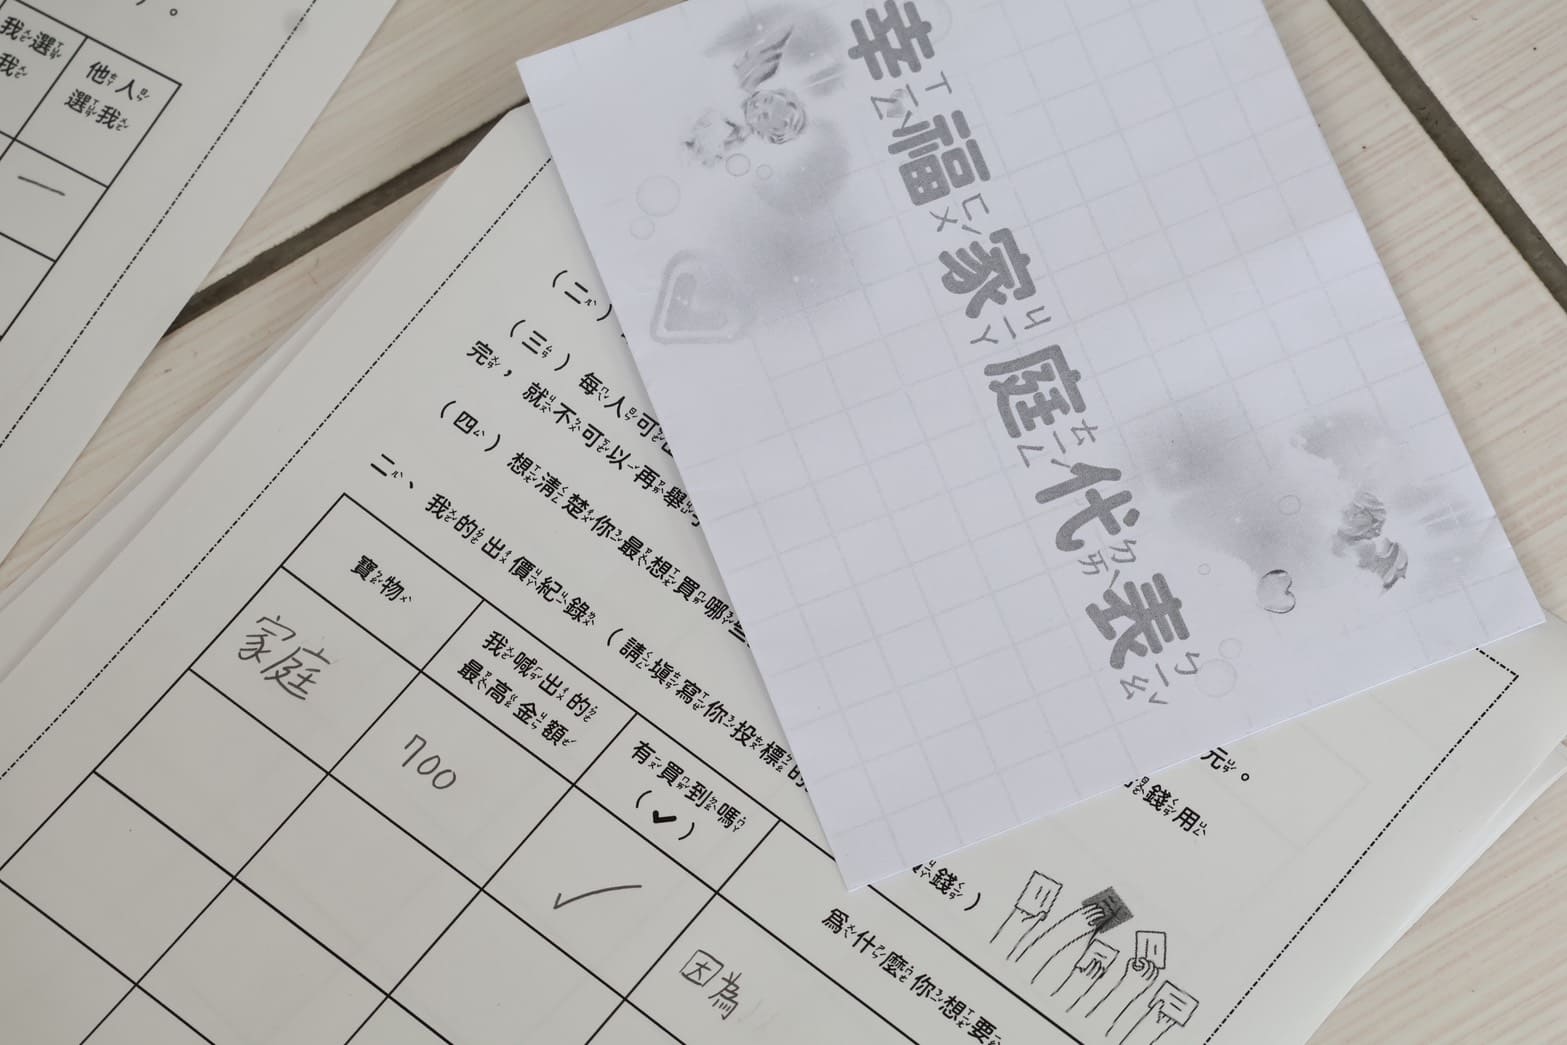 我選
我
他人
選我
一
幸福家庭代表
(二)
(三)每人可
完,就不可以再舉
(四)想清楚你最想買哪些
元。
錢用
二、我的出價紀錄(請填寫你投標的
錢)
寶物
我喊出的
最高金額
有買到嗎
(✓)
為什麼你想要
家庭
700
✓
因為